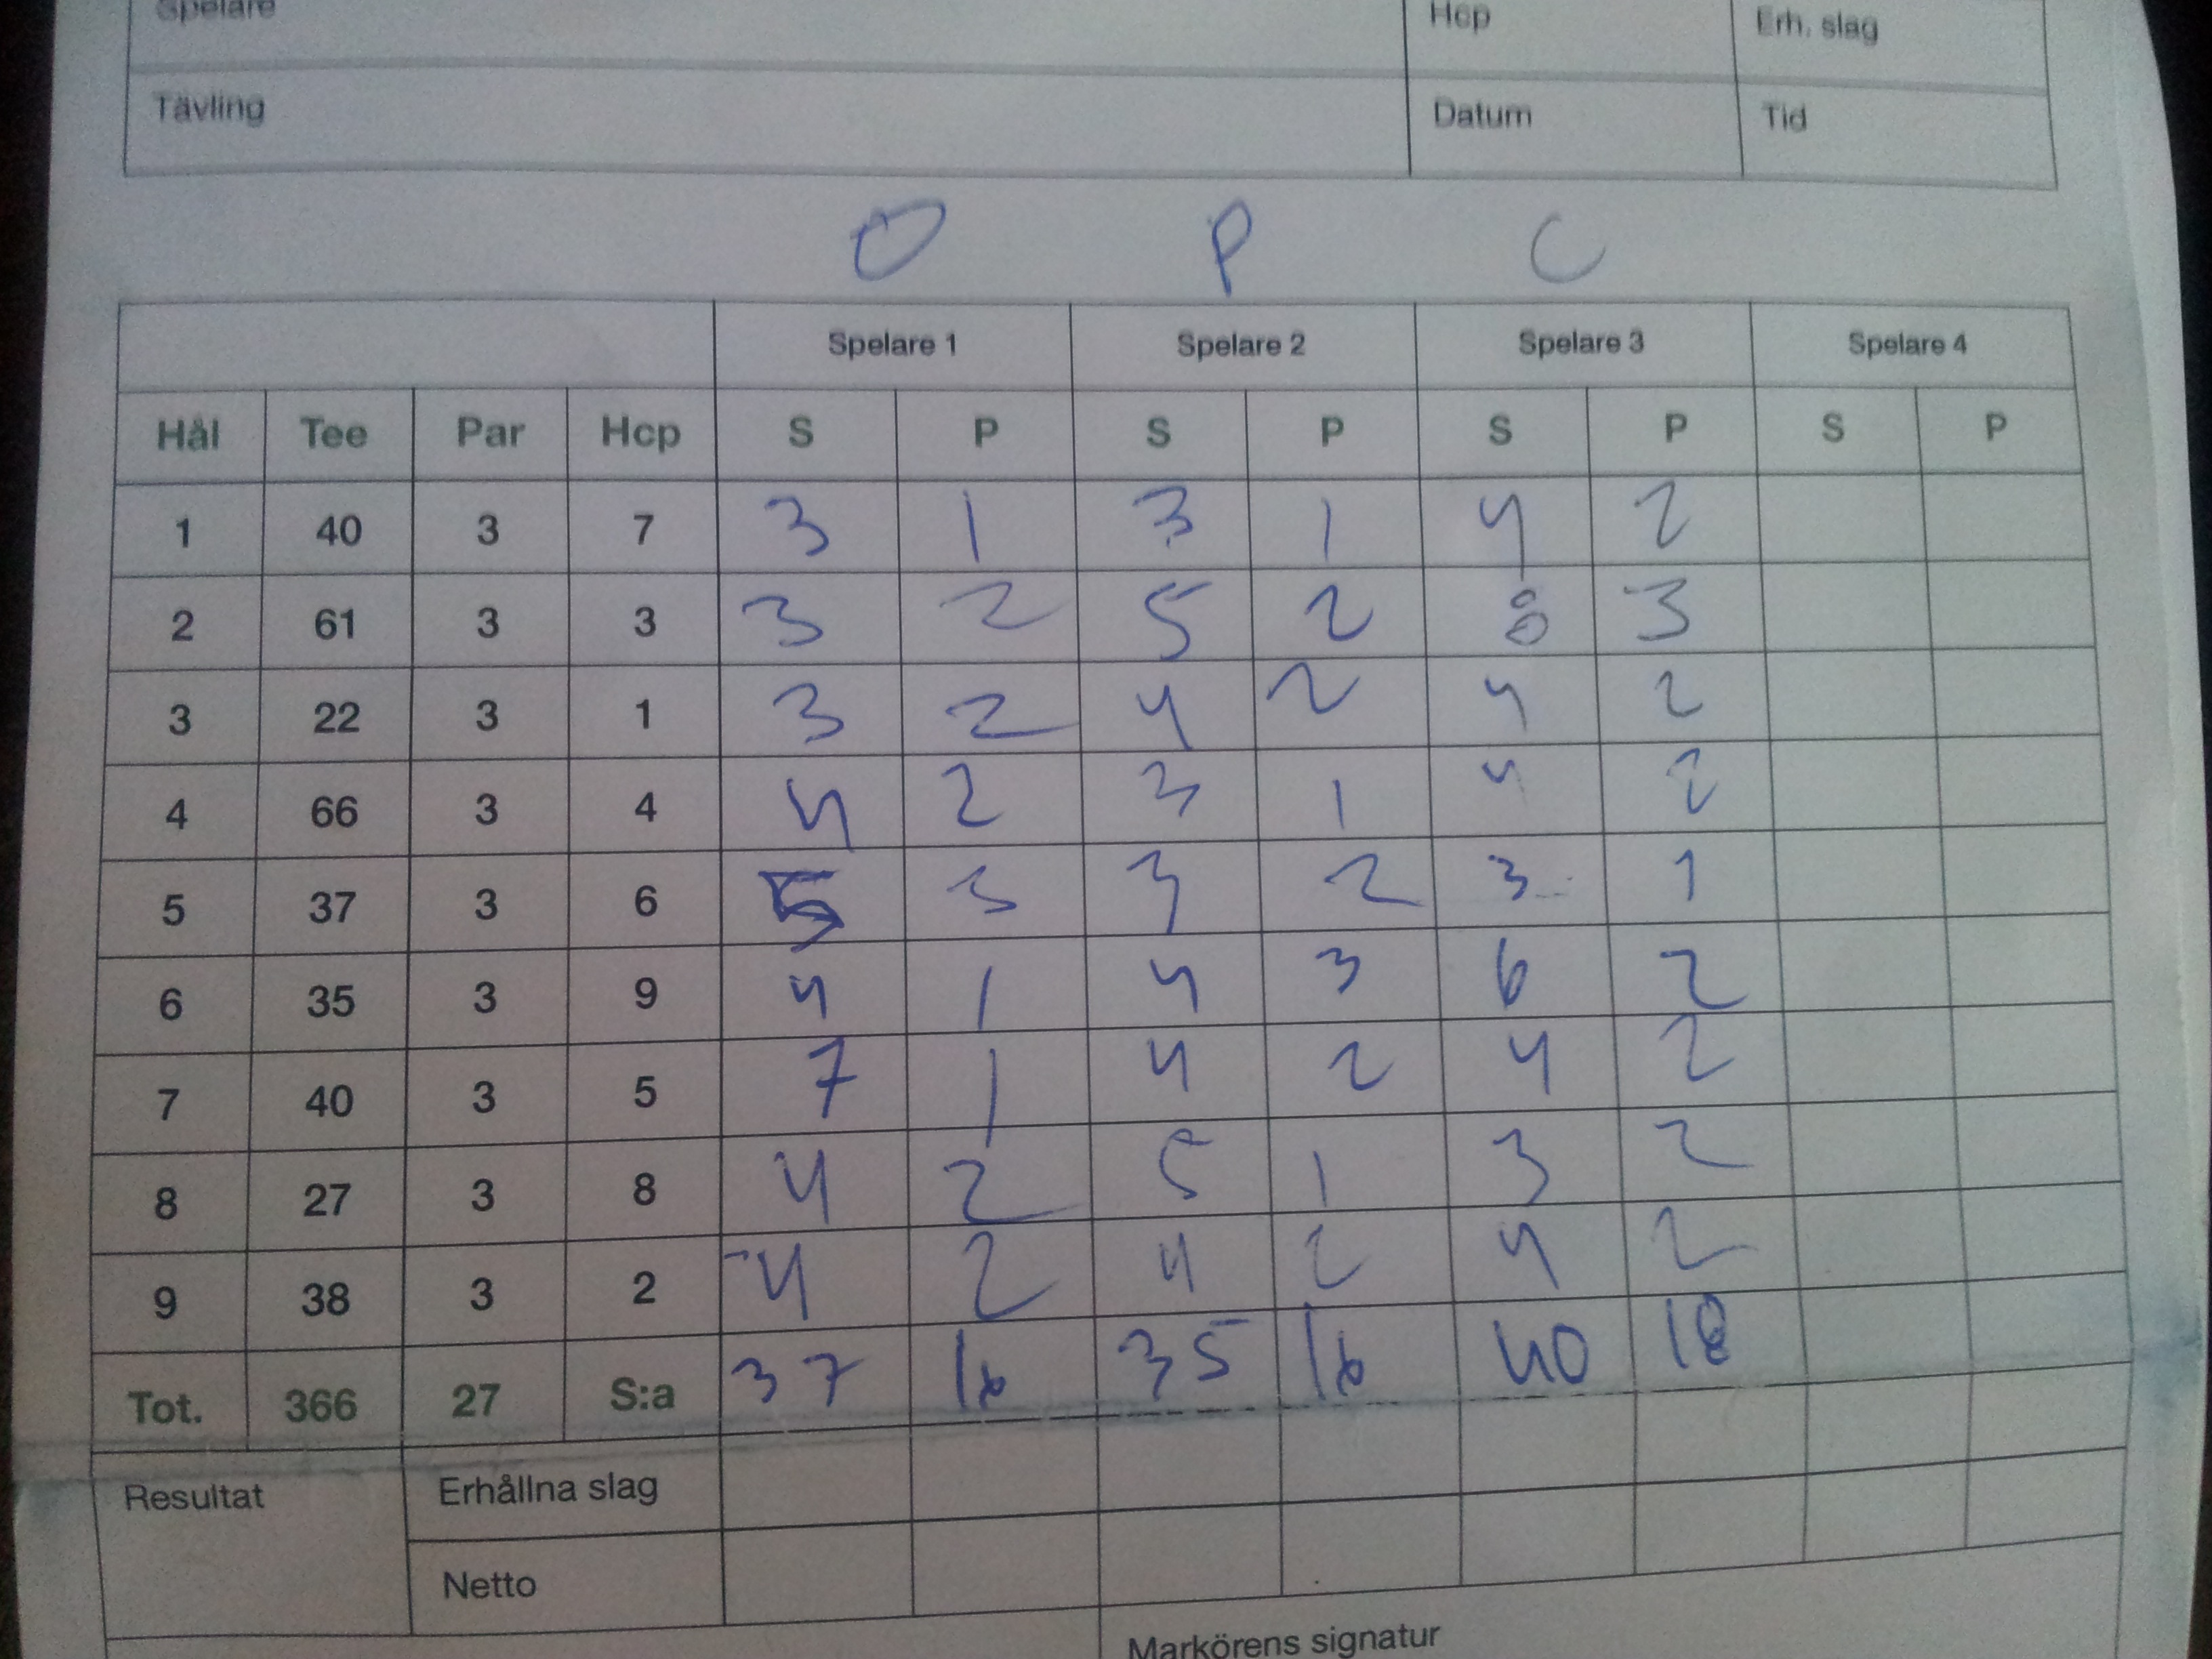 Spelare Hcp Erh. slag
Tävling Datum Tid
O P C
Spelare 1 Spelare 2 Spelare 3 Spelare 4
Hål Tee Par Hcp S P S P S P S P
1 40 3 7 3 1 3 1 4 2
2 61 3 3 3 2 5 2 8 3
3 22 3 1 3 2 4 2 4 2
4 66 3 4 4 2 3 1 4 2
5 37 3 6 5 3 3 2 3 1
6 35 3 9 4 1 4 3 6 2
7 40 3 5 7 1 4 2 4 2
8 27 3 8 4 2 5 1 3 2
9 38 3 2 4 2 4 2 4 2
Tot. 366 27 S:a 37 16 35 16 40 18
Resultat Erhållna slag
Netto
Markörens signatur